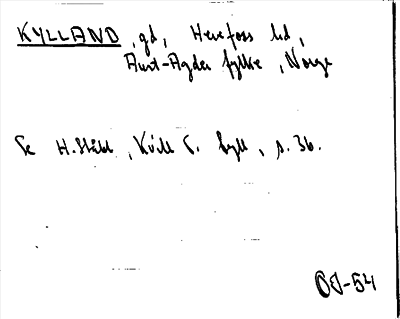 KYLLAND, gd, Herefoss hd,
Aust-Agder fylke, Norge
Se H. Ståhl, Kvill o. kyll, s. 36.
OJ-54